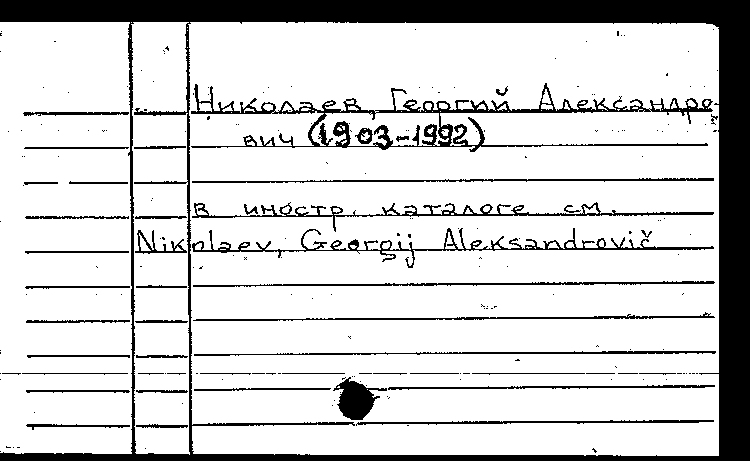 Николаев, Георгий Александро-
вич (1903-1992)
в иностр. каталоге см.
Nikolaev, Georgij Aleksandrovič